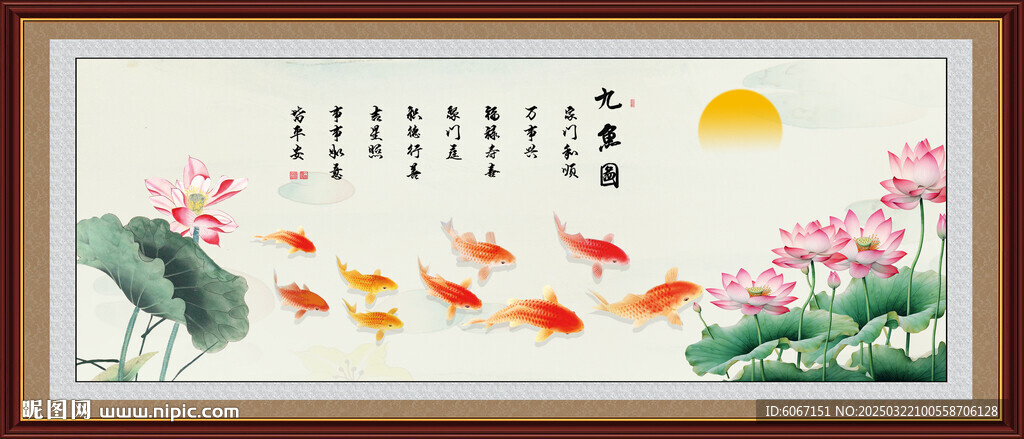 九鱼圖
家门和顺
万事兴
福禄寿喜
聚门庭
积德行善
吉星照
事事如意
皆平安
昵图网 www.nipic.com
ID:6067151 NO:20250322100558706128